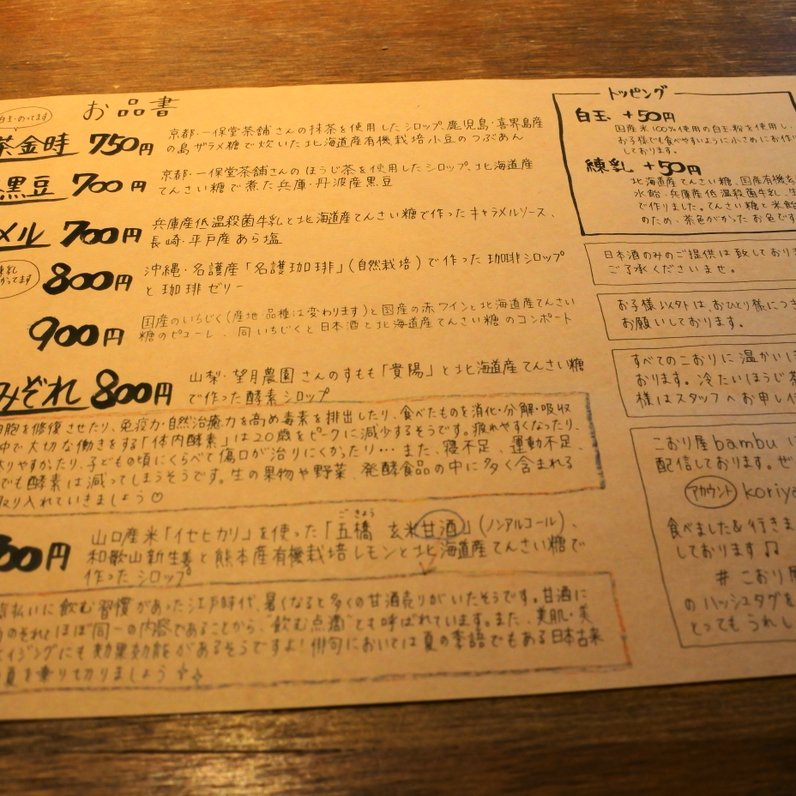 お品書
茶金時 750円
京都・一保堂茶舗さんの抹茶を使用したシロップ、鹿児島・喜界島産
の島ザラメ糖で炊いた北海道産有機栽培小豆のつぶあん
黒豆 700円
京都・一保堂茶舗さんのほうじ茶を使用したシロップ、北海道産
てんさい糖で煮た兵庫・丹波産黒豆
メル 700円
兵庫産低温殺菌牛乳と北海道産てんさい糖で作ったキャラメルソース、
長崎・平戸産あら塩
800円
沖縄・名護産「名護珈琲」(自然栽培)で作った珈琲シロップ
と珈琲ゼリー
900円
国産のいちじく(産地 品種は変わります)と国産の赤ワインと北海道産てんさい
糖のピューレ、同いちじくと日本酒と北海道産てんさい糖のコンポート
みぞれ 800円
山梨・望月農園さんのすもも「貴陽」と北海道産てんさい糖
で作った酵素シロップ
細胞を修復させたり、免疫力・自然治癒力を高め毒素を排出したり、食べたものを消化・分解・吸収
中で大切な働きをする「体内酵素」は20歳をピークに減少するそうです。疲れやすくなったり、
太りやすかったり、子どもの頃にくらべて傷口が治りにくかったり…また、寝不足、運動不足、
でも酵素は減ってしまうそうです。生の果物や野菜、発酵食品の中に多く含まれる
取り入れていきましょう♡
00円
山口産米「イセヒカリ」を使った「五橋 玄米甘酒」(ノンアルコール)、
ごきょう
和歌山新生姜と熊本産有機栽培レモンと北海道産てんさい糖で
作ったシロップ
払いに飲む習慣があった江戸時代、暑くなると多くの甘酒売りがいたそうです。甘酒に
のそれとほぼ同一の内容であることから、"飲む点滴"とも呼ばれています。また、美肌・美
イジングにも効果効能があるそうですよ!俳句においては夏の季語でもある日本古来
夏を乗り切りましょう
トッピング
白玉 +50円
国産米100%使用の白玉粉を使用し、
お子様でも食べやすいように小さめにお作り
しております。
練乳 +50円
北海道産てんさい糖、国産有機玄
水飴、兵庫産低温殺菌牛乳、生
で作りました。てんさい糖と米飴
のため、茶色がかったお色です
日本酒のみのご提供は致しておりま
ご了承くださいませ。
お子様以外は、おひとり様につき
お願いしております。
すべてのこおりに温かいほ
おります。冷たいほうじ茶
様はスタッフへお申し付
こおり屋bambu
配信しております。ぜ
アカウント koriya
食べました&行きま
しております♫
#こおり屋
のハッシュタグを
とってもうれし